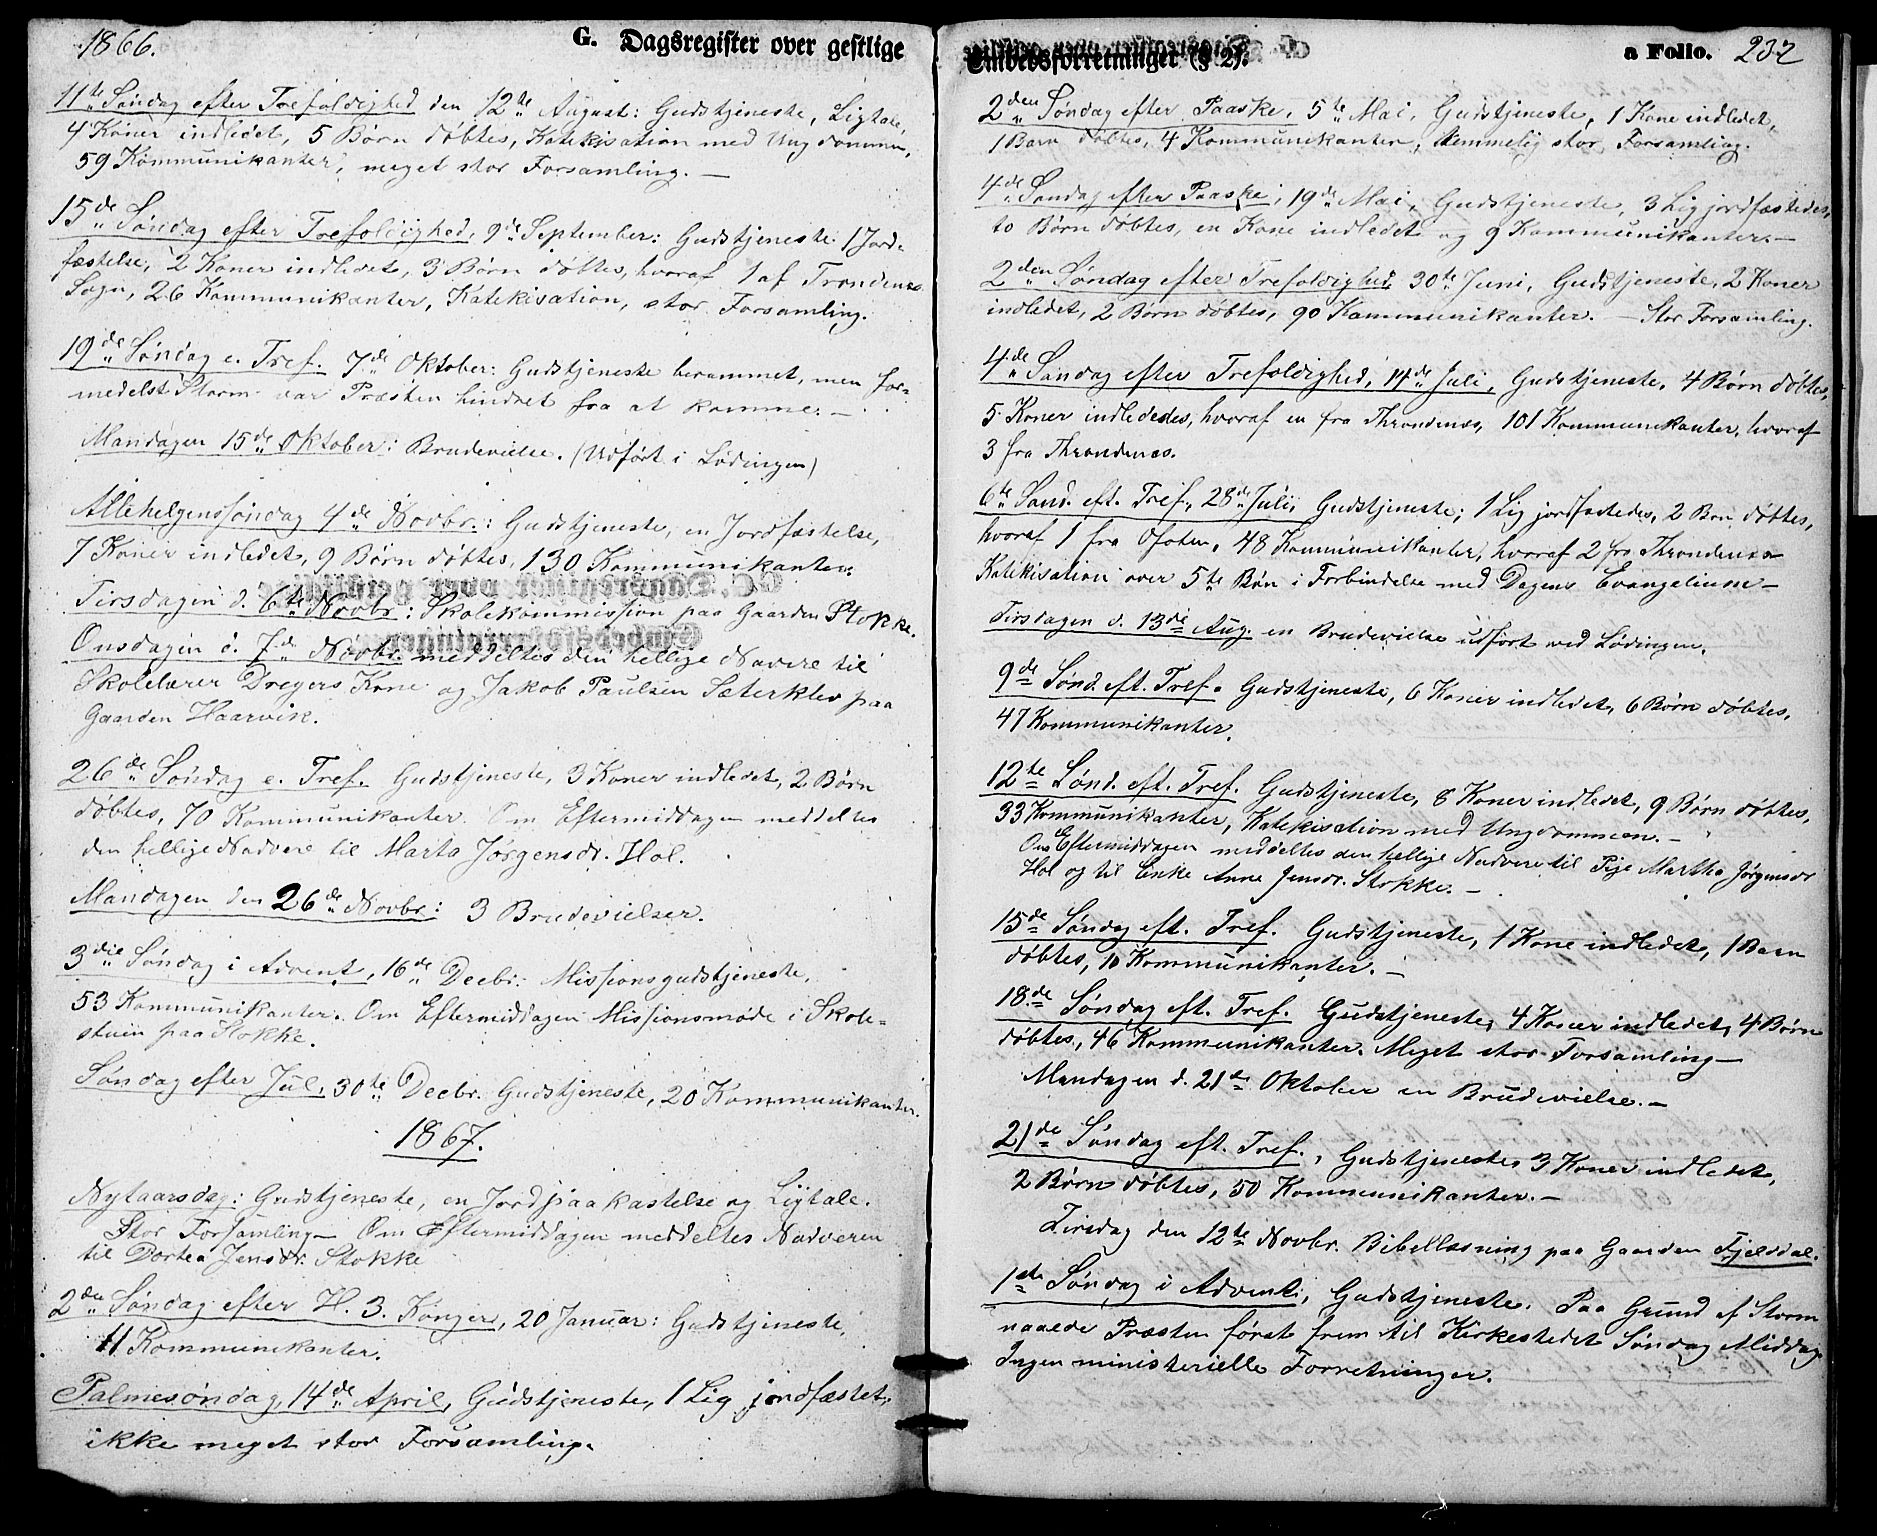 1866.
G. Dagsregister over gestlige
11te Søndag efter Trefoldighed den 12te August: Gudstjeneste, Ligtale,
4 Koner indledet, 5 Børn døbtes, Katekisation med Ungdommen,
59 Kommunikanter, meget stor Forsamling. —
15de Søndag efter Trefoldighed, 9de September: Gudstjeneste 1 Jord-
fæstelse, 2 Koner indledet, 3 Børn døbtes, hvoraf 1 af Trondenæs
Sogn, 26 Kommunikanter, Katekisation, stor Forsamling.
19de Søndag e. Tref. 7de Oktober: Gudstjeneste berammet, men for-
medelst Storm var Præsten hindret fra at komme. —
Mandagen 15de Oktober: Brudevielse. (Udført i Lødingen)
Allehelgenssøndag 4de Novbr.: Gudstjeneste, en Jordfæstelse,
7 Koner indledet, 9 Børn døbtes, 130 Kommunikanter.
Tirsdagen d. 6te Novbr: Skolekommission paa Gaarden Stokke.
Onsdagen d. 7de Novbr. meddeltes den hellige Nadvere til
Skolelærer Dreyers Kone og Jakob Paulsen Sæterklev paa
Gaarden Haarvik.
26de Søndag e. Tref. Gudstjeneste, 3 Koner indledet, 2 Børn
døbtes, 70 Kommunikanter. Om Eftermiddagen meddeltes
den hellige Nadvere til Marta Jørgensdr. Hol.
Mandagen den 26de Novbr: 3 Brudevielser.
3die Søndag i Advent, 16de Decbr: Missionsgudstjeneste,
53 Kommunikanter. Om Eftermiddagen Missionsmøde i Skole-
stuen paa Stokke.
Søndag efter Jul, 30te Decbr. Gudstjeneste, 20 Kommunikanter.
1867.
Nytaarsdag: Gudstjeneste, en Jordpaakastelse og Ligtale.
Stor Forsamling — Om Eftermiddagen meddeltes Nadveren
til Dortea Jensdr. Stokke
2den Søndag efter H. 3. Konger, 20 Januar: Gudstjeneste,
11 Kommunikanter.
Palmesøndag, 14de April, Gudstjeneste, 1 Lig jordfæstet,
ikke meget stor Forsamling.
Embedsforretninger (§ 2).
a Folio. 232
2den Søndag efter Paaske, 5te Mai, Gudstjeneste, 1 Kone indledet,
1 Barn døbtes, 4 Kommunikanter, temmelig stor Forsamling.
4de Søndag efter Paaske, 19de Mai, Gudstjeneste, 3 Lig jordfæstedes,
to Børn døbtes, en Kone indledet og 9 Kommunikanter. —
2den Søndag efter Trefoldighed 30te Juni, Gudstjeneste, 2 Koner
indledet, 2 Børn døbtes, 90 Kommunikanter. — Stor Forsamling.
4de Søndag efter Trefoldighed, 14de Juli, Gudstjeneste, 4 Børn døbtes,
5 Koner indlededes, hvoraf en fra Throndenæs, 101 Kommunikanter, hvoraf
3 fra Throndenæs.
6te Sønd. eft. Tref., 28de Juli, Gudstjeneste; 1 Lig jordfæstedes, 2 Børn døbtes,
hvoraf 1 fra Ofoten, 48 Kommunikanter, hvoraf 2 fra Throndenæs
Katekisation over 5te Bøn i Forbindelse med Dagens Evangelium —
Tirsdagen d. 13de Aug. en Brudevielse udført ved Lødingen.
9de Sønd. eft. Tref. Gudstjeneste, 6 Koner indledet, 6 Børn døbtes,
47 Kommunikanter.
12te Sønd. eft. Tref. Gudstjeneste, 8 Koner indledet, 9 Børn døbtes,
33 Kommunikanter, Katekisation med Ungdommen. —
Om Eftermiddagen meddeltes den hellige Nadvere til Pige Martha Jørgensdr
Hol og til Enke Anne Jensdr. Stokke. —
15de Søndag eft. Tref. Gudstjeneste, 1 Kone indledet, 1 Barn
døbtes, 10 Kommunikanter. —
18de Søndag eft. Tref. Gudstjeneste, 4 Koner indledet, 4 Børn
døbtes, 46 Kommunikanter. Meget stor Forsamling —
Mandagen d. 21de Oktober en Brudevielse. —
21de Søndag eft. Tref., Gudstjeneste 3 Koner indledet,
2 Børn døbtes, 50 Kommunikanter. —
Tirsdag den 12te Novbr. Bibellæsning paa Gaarden Fjelddal.
1ste Søndag i Advent, Gudstjeneste. Paa Grund af Storm
naaede Præsten først frem til Kirkestedet Søndag Middag.
Ingen ministerielle Forretninger.